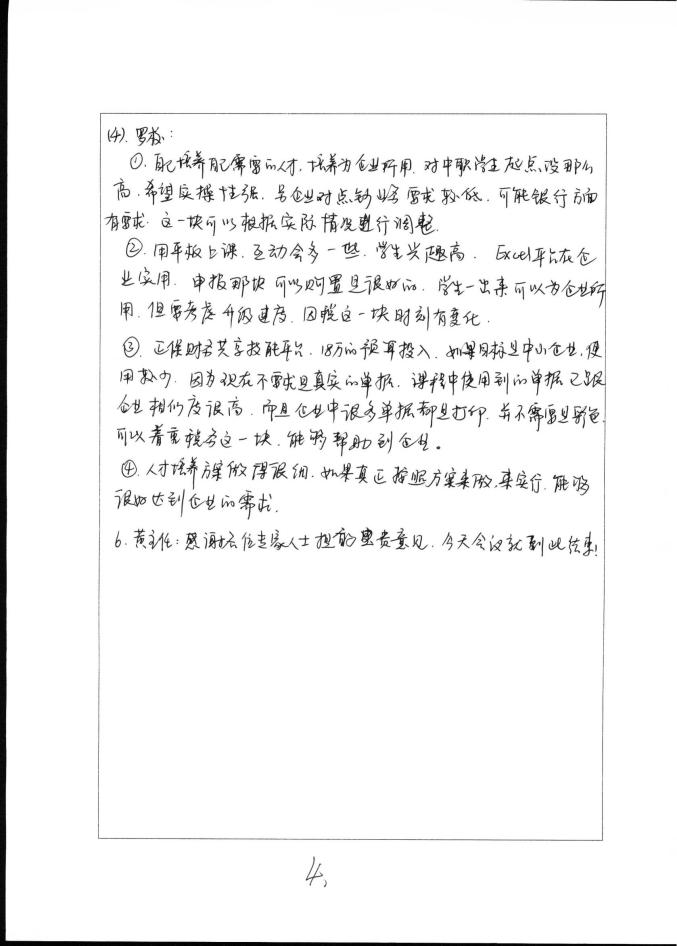 (4). 罗校:
①. 自己培养自己需要的人才, 培养为企业所用. 对中职学生起点没那么
高, 希望实操性强, 另企业对点钞业务需求较低, 可能银行方面
有需求. 这一块可以根据实际情况进行调整.
②. 用平板上课, 互动会多一些, 学生兴趣高. Excel平台在企
业实用. 申报那块可以购置是很好的. 学生一出来可以为企业所
用. 但需考虑升级进度, 因税这一块时刻有变化.
③. 正保财务共享技能平台, 18万的预算投入, 如果目标是中小企业, 使
用较少. 因为现在不需求是真实的单据. 课程中使用到的单据已跟
企业相似度很高, 而且企业中很多单据都是打印. 并不需要是彩色.
可以着重税务这一块, 能够帮助到企业。
④. 人才培养方案做得很细, 如果真正按照方案来做, 来实行, 能够
很好达到企业的需求.
6. 黄主任: 感谢各位专家人士提的宝贵意见, 今天会议就到此结束!
4,